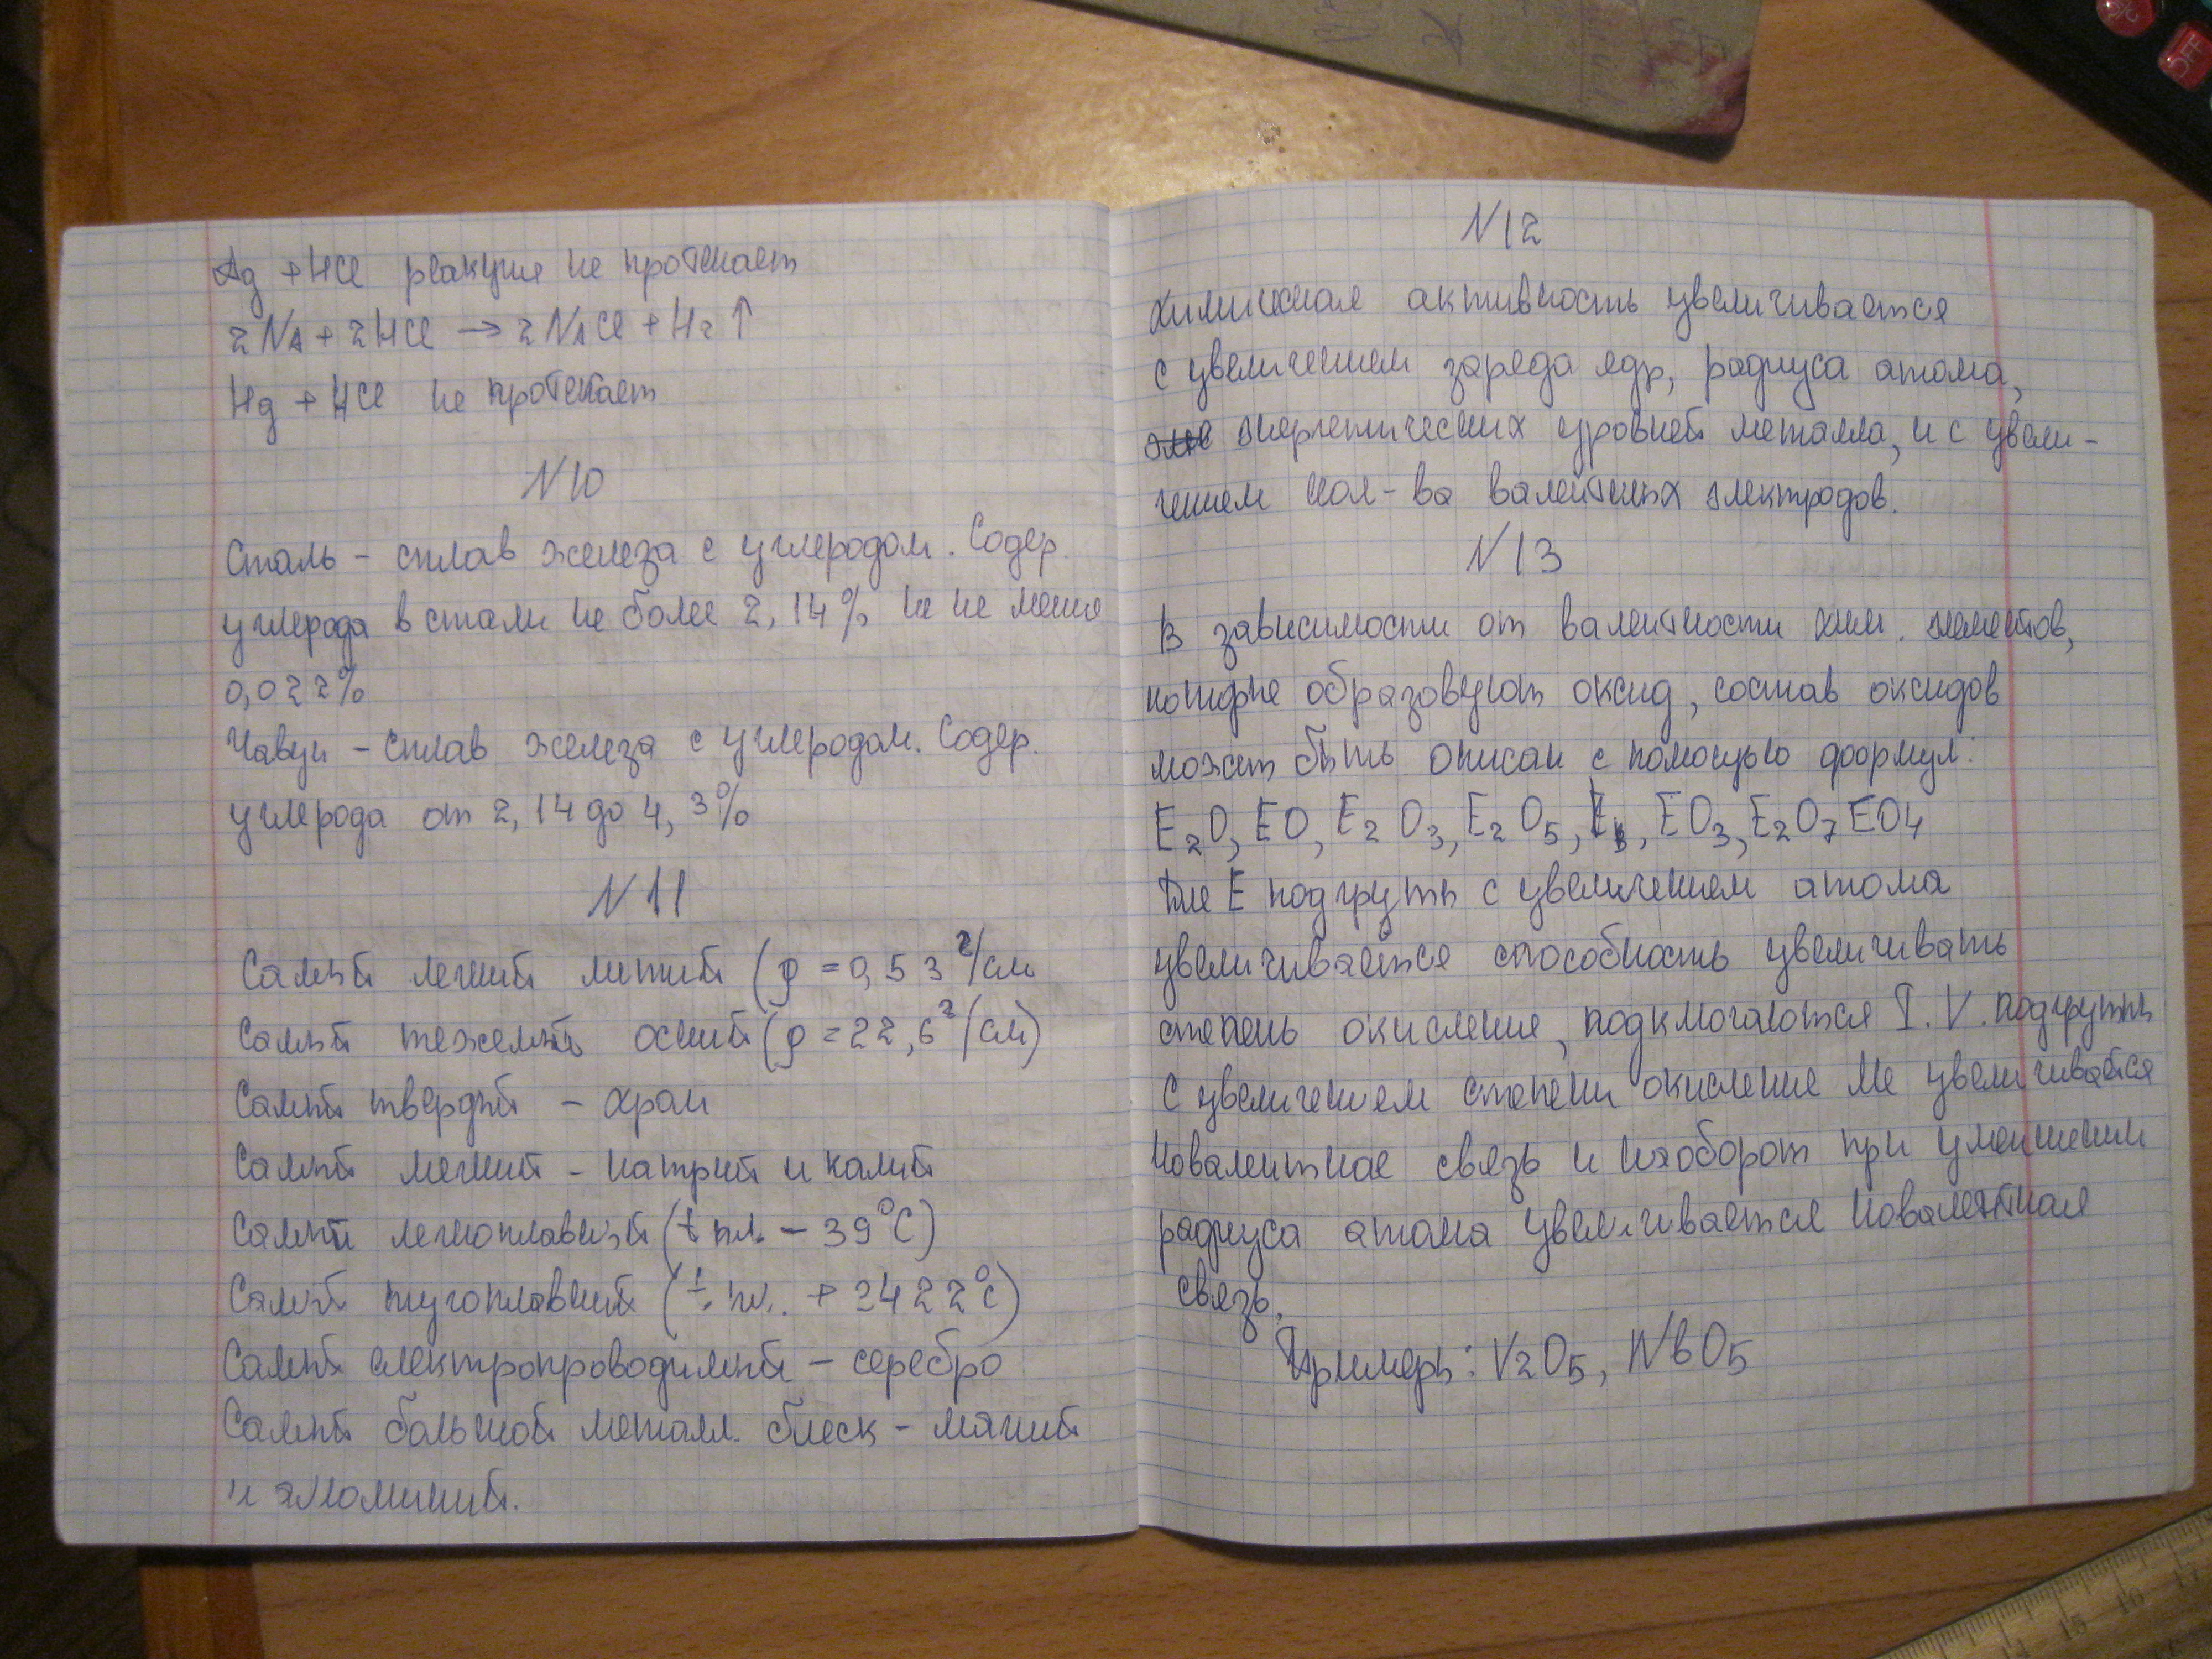 Ag + HCl реакция не протекает
2Na + 2HCl → 2NaCl + H2↑
Hg + HCl не протекает
N10
Сталь – сплав железа с углеродом. Содер.
углерода в стали не более 2,14% и не мение
0,022%
Чавун – сплав железа с углеродом. Содер.
углерода от 2,14 до 4,3%
N11
Самый легкий литий (ρ = 0,53 г/см
Самый тежелый осмий (ρ = 22,6 г/см)
Самый твердый – хром
Самый мегкий – натрий и калий
Самый легкоплавкий (t пл. – 39°C)
Самый тугоплавкий (t. пл. + 3422°C)
Самый електропроводимый – серебро
Самый большой металл. блеск – магний
и алюминий.
N12
химическая активность увеличивается
с увеличением заряда ядр, радиуса атома,
энергетических уровней металла, и с увели-
чением кол-ва валентных электродов.
N13
В зависимости от валентности хим. элементов,
которые образовуют оксид, состав оксидов
может быть описан с помощью формул:
E2O, EO, E2O3, E2O5, EO3, E2O7 EO4
Для E подгрупы с увеличением атома
увеличивается способность увеличивать
степень окисления, подключаются I. V. подгрупы
С увеличением степени окисления Ме увеличивается
ковалентная связь и наоборот при уменшении
радиуса атома увеличивается ковалентная
связь.
Примеры: V2O5, NbO5
OFF
14 15 16 17